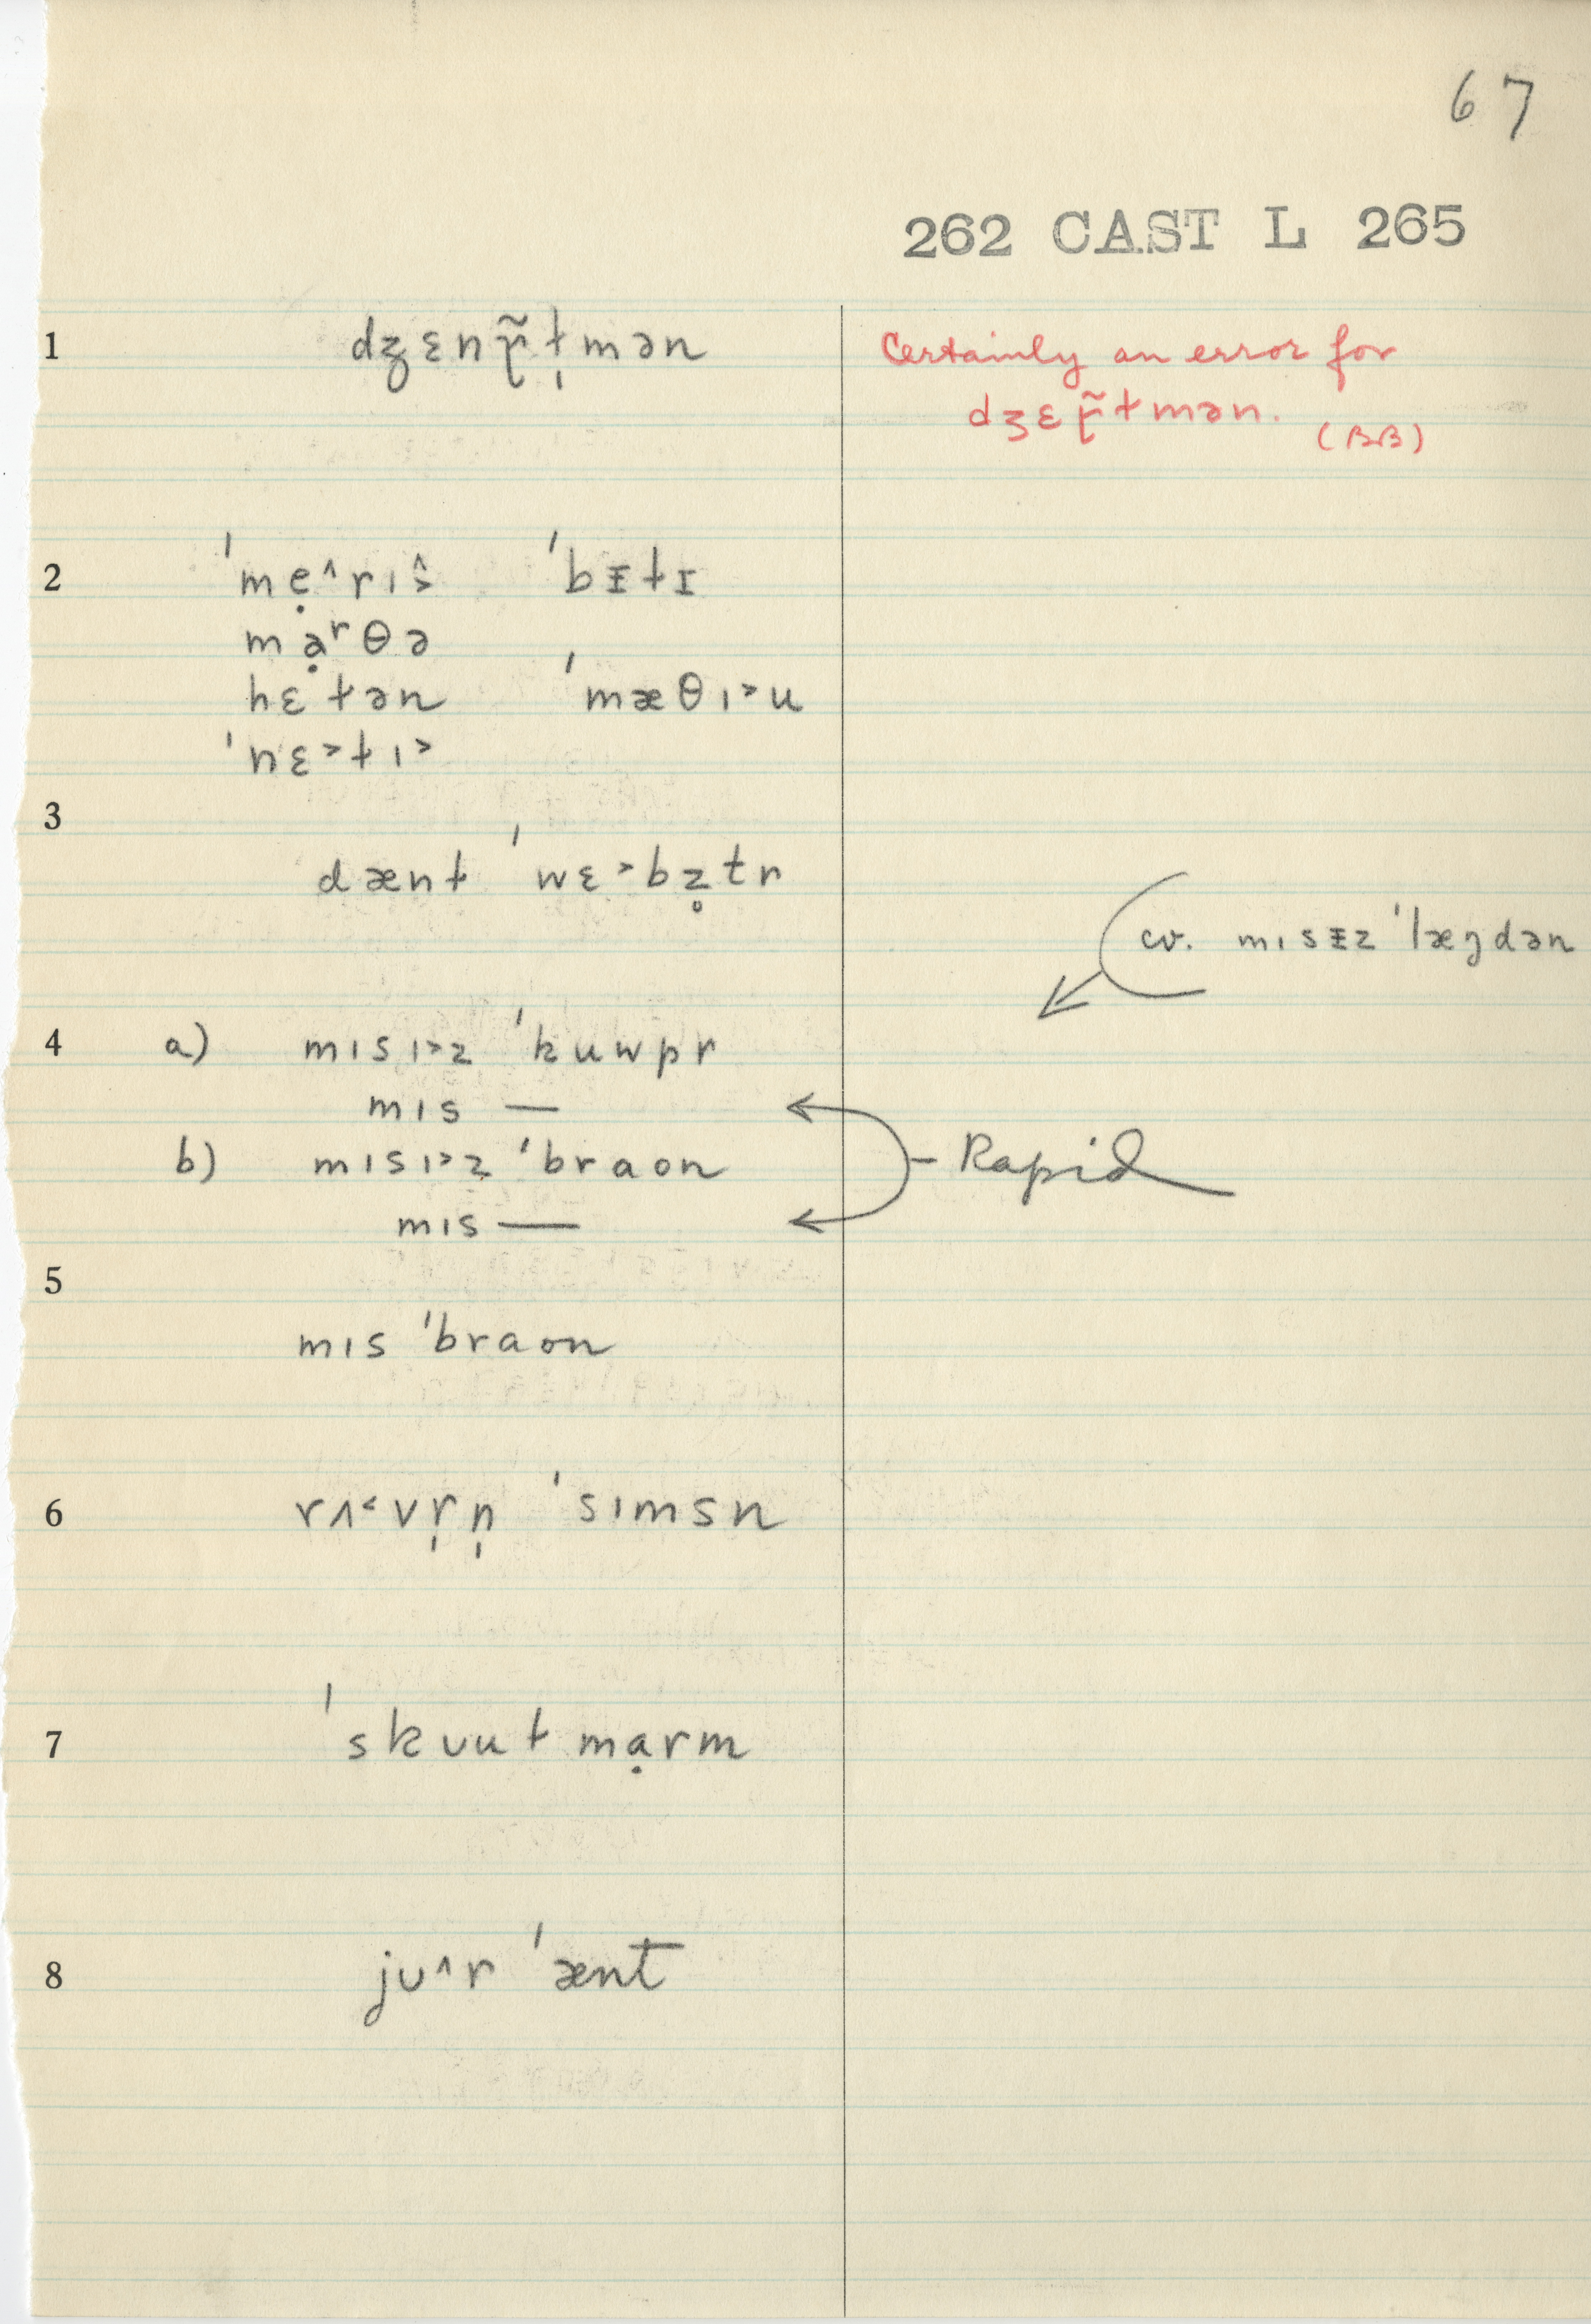 67
262 CAST L 265
1 dʒɛnɾ̃ɫ̩mən
Certainly an error for
dʒɛɾ̃ɫmən.
(BB)
2 ˈmẹ˄rɩ˄˃ ˈbᵻɫɪ
mạʳθə
hɛɫən ˈmæθɩ˃u
ˈnɛ˃ɫɩ˃
3
dænɫ ˈwɛ˃bz̥tr
cv. mɩsᵻz ˈlæŋdən
4 a) mɩsɩ˃z ˈkuwpr
mɩs —
b) mɩsɩ˃z ˈbraon
Rapid
mɩs —
5
mɩs ˈbraon
6 rʌ˂vr̩n̩ ˈsɩmsn
7 ˈskuuɫmạrm
8 jʊ˄r ˈænt